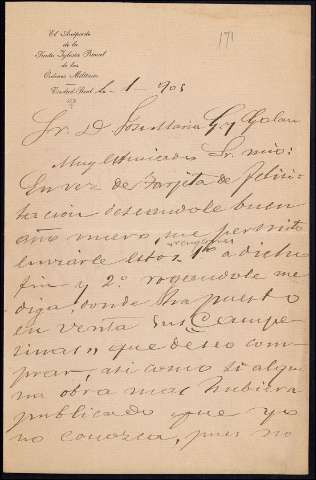 El Arcipreste
de la
Santa Iglesia Prioral
de las
Ordenes Militares
Ciudad-Real 1 - 905
171
Sr. D. Jose Maria Gabriel y Galan
Muy estimado Sr. mio:
En vez de tarjeta de felici-
tacion deseandole buen
año nuevo, me permito
renglones
enviarle estos 1º a dicho
fin y 2º rogandole me
diga, donde ha puesto
en venta sus Campe-
sinas, que deseo com-
prar, asi como si algu-
na obra mas hubiera
publicado que yo
no conozca, pues no